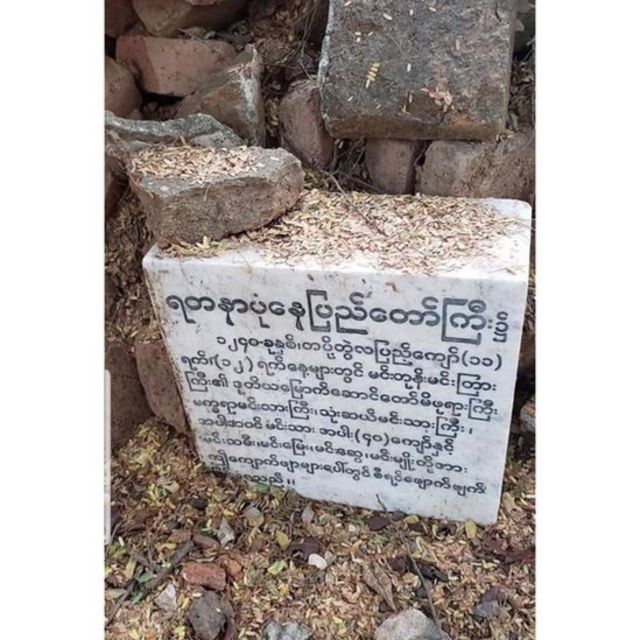 ရတနာပုံနေပြည်တော်ကြီး၌
၁၂၄၀-ခုနှစ်၊တပို့တွဲလပြည့်ကျော်(၁၁)
ရက်၊(၁၂)ရက်နေ့များတွင် မင်းတုန်းမင်းတြား
ကြီး၏ ဒုတိယမြောက်ဆောင်တော်မိဖုရားကြီး
မက္ခရာမင်းသားကြီး၊သုံးဆယ်မင်းသားကြီး၊
အပါအဝင် မင်းသား အပါး(၄၀)ကျော်နှင့်
မင်းသမီး၊မင်းမြေး၊မင်းဆွေ၊မင်းမျိုးတို့အား
ဤကျောက်ဖျာများပေါ်တွင် စီရင်ဖျောက်ဖျက်